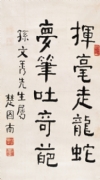 揮毫走龍蛇
夢筆吐奇葩
孫文秀先生屬
楚圖南